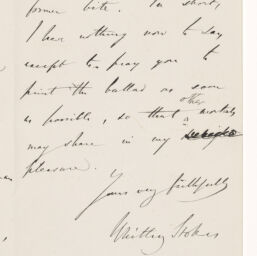 former bite. In short,
I have nothing now to say
except to pray you to
print the ballad as soon
other
as possible, so that mortals
may share in my
pleasure.
Yours very faithfully
Whitley Stokes